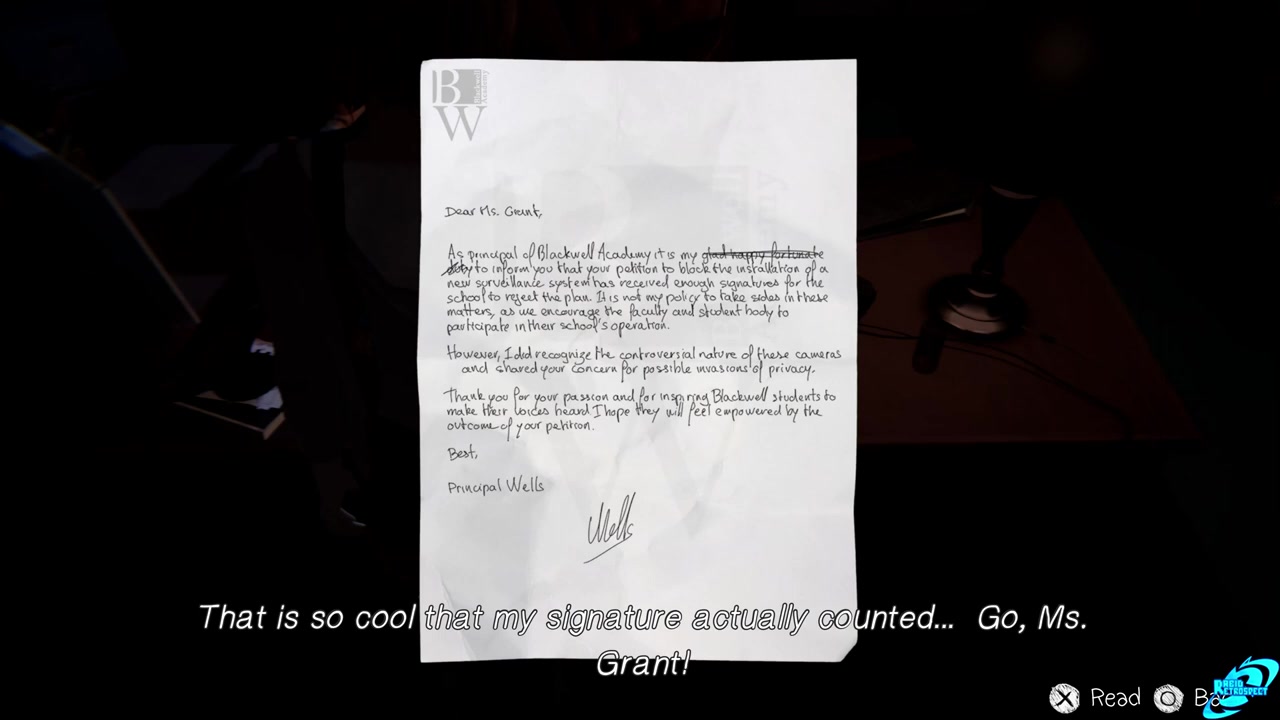 BW
Blackwell
Academy
Dear Ms. Grant,
As principal of Blackwell Academy it is my glad happy fortunate
duty to inform you that your petition to block the installation of a
new surveillance system has received enough signatures for the
school to reject the plan. It is not my policy to take sides in these
matters, as we encourage the faculty and student body to
participate in their school's operation.
However, I did recognize the controversial nature of these cameras
and shared your concern for possible invasions of privacy.
Thank you for your passion and for inspiring Blackwell students to
make their voices heard I hope they will feel empowered by the
outcome of your petition.
Best,
Principal Wells
Wells
That is so cool that my signature actually counted... Go, Ms.
Grant!
Read
RETROSPECT